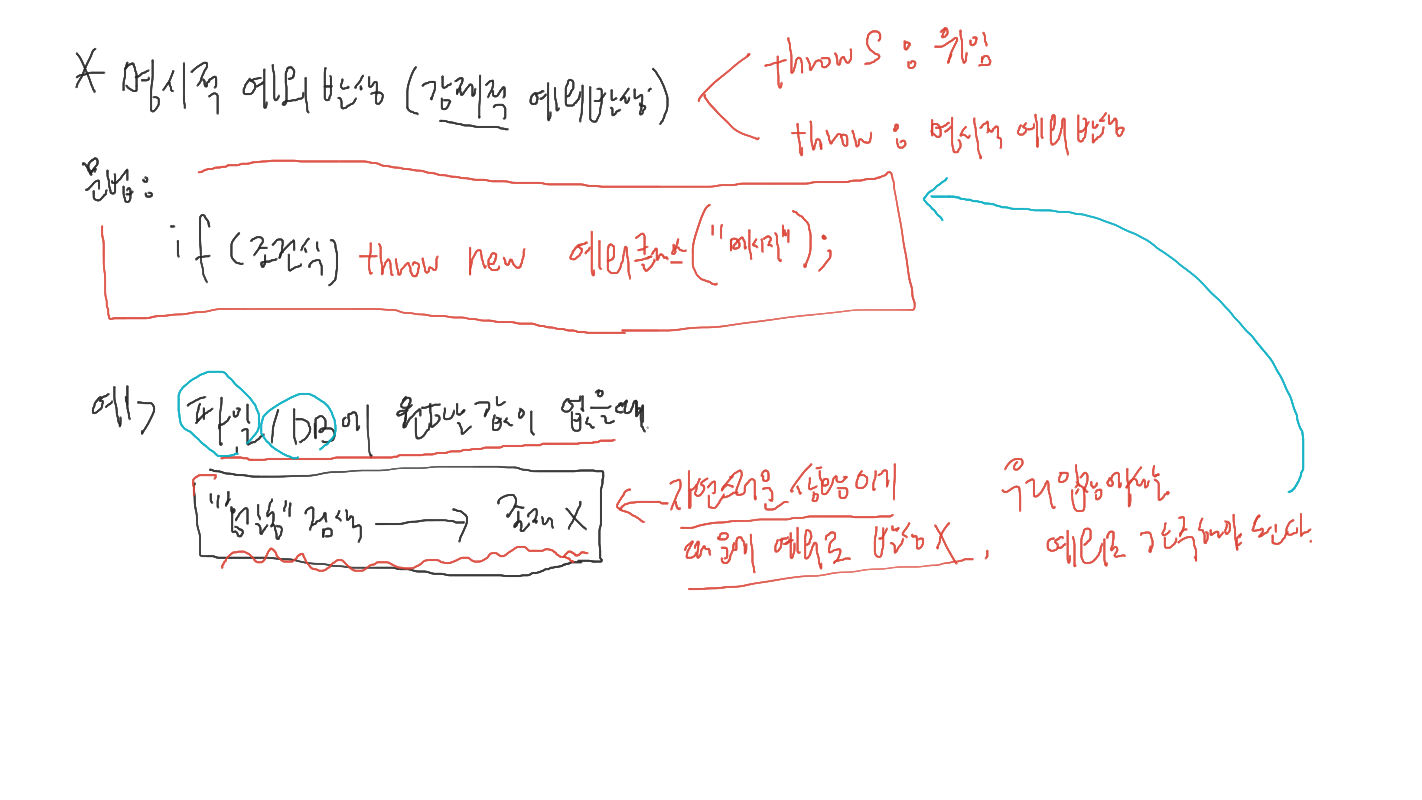 * 명시적 예외 발생 (강제적 예외발생)
throws : 위임
throw : 명시적 예외발생
문법:
if (조건식) throw new 예외클래스("메시지");
예> 파일/DB에 원하는 값이 없을때
"홍길동" 검색 → 존재 X
자연스러운 상황이기
때문에 예외로 발생 X.
우리 입장에서는
예외로 간주해야 된다.